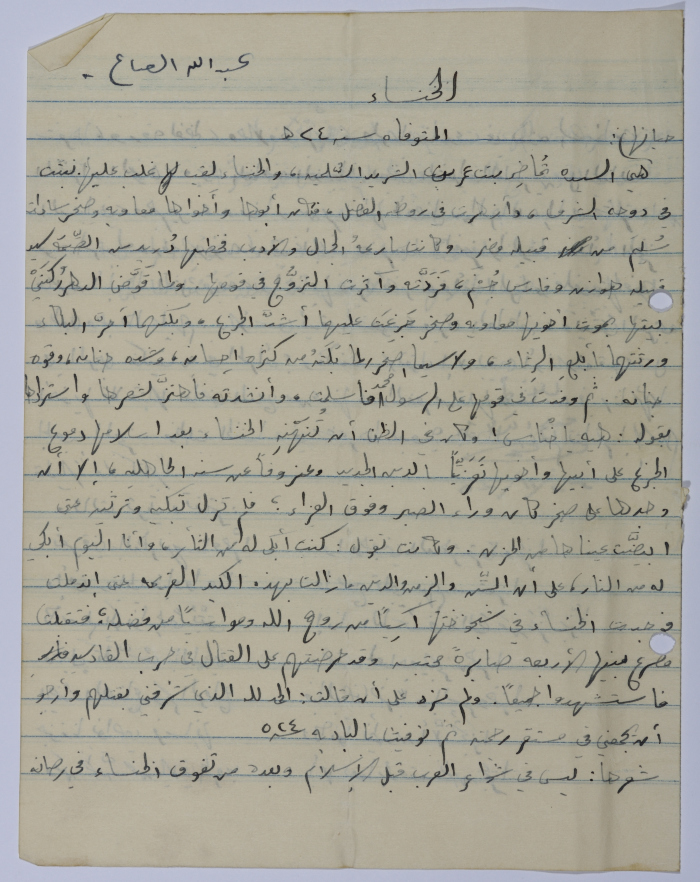 عبد الله الصانع .
الخنساء
حياتها : المتوفاه سنه ٢٤ هـ
هي السيده تُماضِر بنت عمرو بن الشريد السلميه ، والخنساء لقب لها غلب عليها نبتت
في دوحة الشرف ، وازهرت في روضة الفضل ، فكان أبوها وأخواها معاويه وصخر سادات
سُليم من قبيله مضر . وكانت بارعة الجمال والأدب فخطبها دُريد بن الصِّمَّة سيد
قبيله هوازن وفارس جُشم ، فردَّته وآثرت التزوُّج في قومها . ولما قوَّض الدهر رُكنَيْ
بيتها بموت أخويها معاويه وصخر جَزِعت عليهما أشدَّ الجزع ، وبكتهما أحرَّ البكاء
ورثتهما بأبلغ الرثاء ، ولا سيما صخر لما بَلَتْهُ من كثره احسانه ، وشده حنانه ، وقوه
جنانه . ثم وفدت في قومها على الرسول محمد فأسلمت ، وأنشدته فاهتزَّ لشعرها واستزادها
بقوله : هيه يا خناس ! وكان في الظن أن تُنَهْنِه الخنساء بعد اسلامها دموع
الجزع على أبيها وأخويها تَعَزِّيًا بالدين الجديد وعزوفًا عن سنه الجاهليه ، إلا أن
وجدها على صخر كان وراء الصبر وفوق العزاء ؛ فلم تزل تبكيه وترثيه حتى
ابيضَّت عيناها من الحزن . وكانت تقول : كنت أبكي له من الثأر ، وأنا اليوم أبكي
له من النار ، على أن السِّنَّ والزمن والدين ما زالت بهذه الكبد القريحه حتى اندملت
فوجدت الخنساء في شيخوختها آسيًا من روح الله ومواسيًا من فضله ، فتقبلت
مصرع بنيها الأربعه صابرةً محتسبه وقد حرضتهم على القتال في حرب القادسيه
فاستشهدوا جميعًا . ولم تزد على أن قالت : الحمد لله الذي شرفني بقتلهم وأرجو
أن يجمعني في مستقر رحمته ثم توفيت بالباديه ٢٤ هـ
شعرها : ليس في شواعر العرب قبل الإسلام وبعده من تفوق الخنساء في رصانه